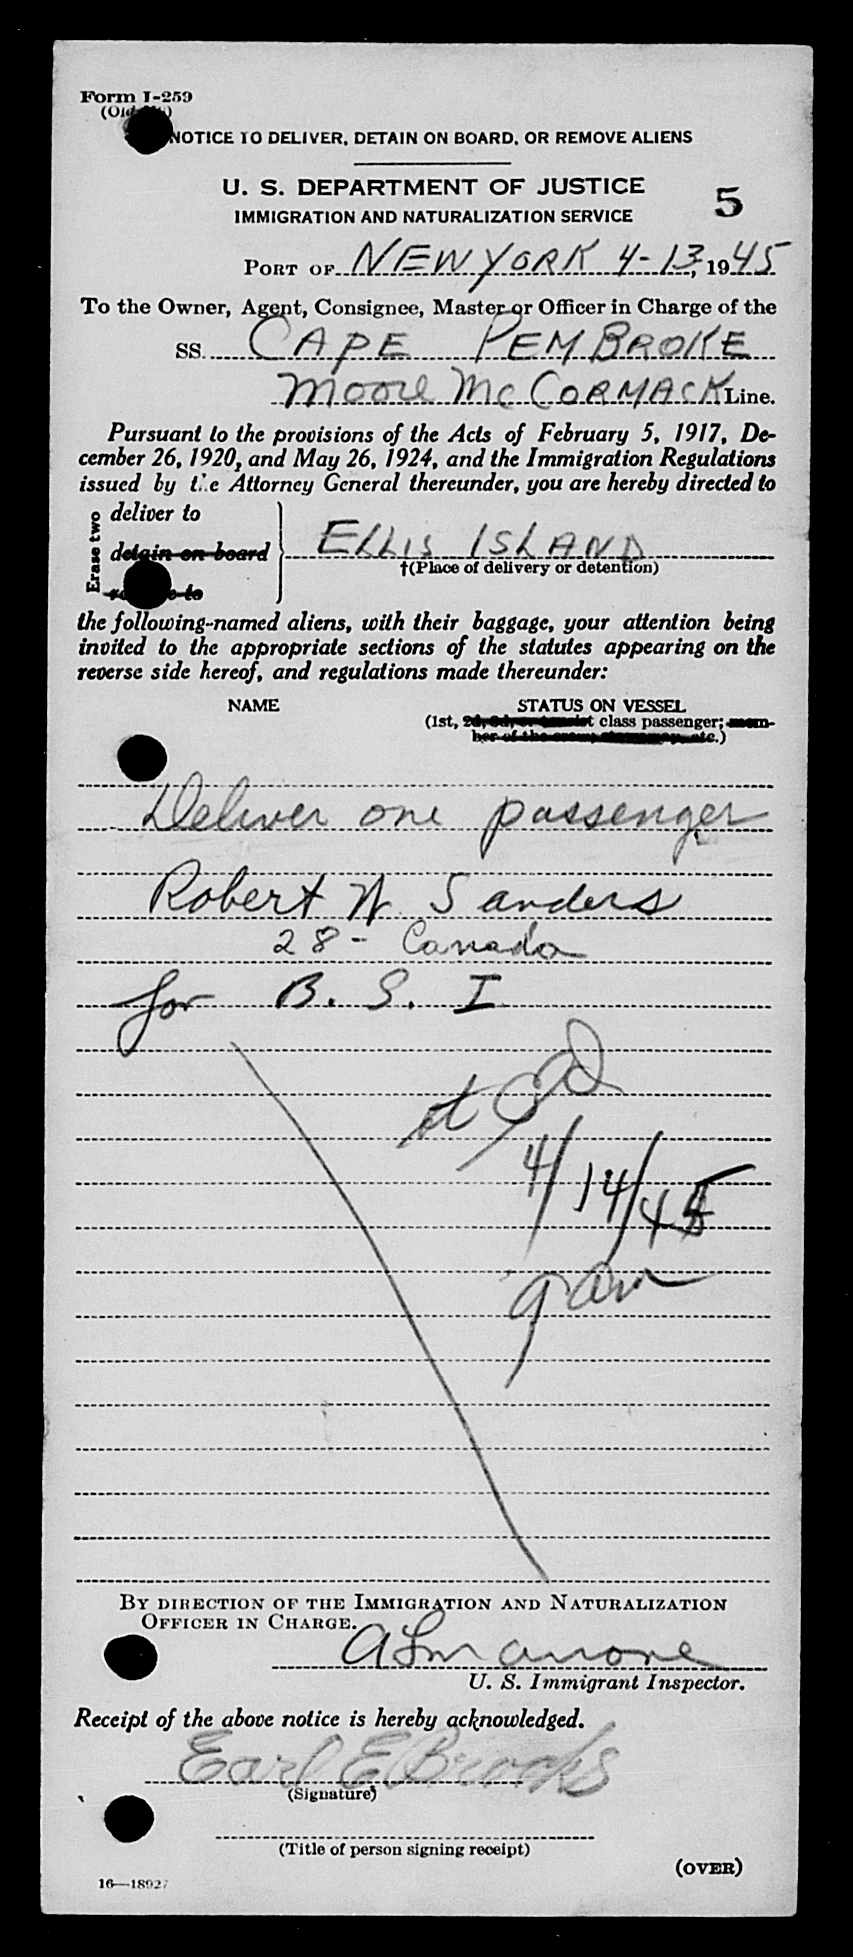 Form I-259
NOTICE TO DELIVER, DETAIN ON BOARD, OR REMOVE ALIENS
U. S. DEPARTMENT OF JUSTICE
5
IMMIGRATION AND NATURALIZATION SERVICE
PORT OF NEW YORK 4-13, 1945
To the Owner, Agent, Consignee, Master or Officer in Charge of the
SS. CAPE PEMBROKE
Moore McCORMACK Line.
Pursuant to the provisions of the Acts of February 5, 1917, De-
cember 26, 1920, and May 26, 1924, and the Immigration Regulations
issued by the Attorney General thereunder, you are hereby directed to
Erase two
deliver to
detain on board
ELLIS ISLAND
†(Place of delivery or detention)
the following-named aliens, with their baggage, your attention being
invited to the appropriate sections of the statutes appearing on the
reverse side hereof, and regulations made thereunder:
NAME STATUS ON VESSEL
(1st, 2d, 3d, or tourist class passenger; mem-
ber of the crew, stowaway, etc.)
Deliver one passenger
Robert W Sanders
28 - Canada
for B. S. I
at
4/14/45
9 am
BY DIRECTION OF THE IMMIGRATION AND NATURALIZATION
OFFICER IN CHARGE.
U. S. Immigrant Inspector.
Receipt of the above notice is hereby acknowledged.
Earl E Brooks
(Signature)
(Title of person signing receipt)
(OVER)
16—18927